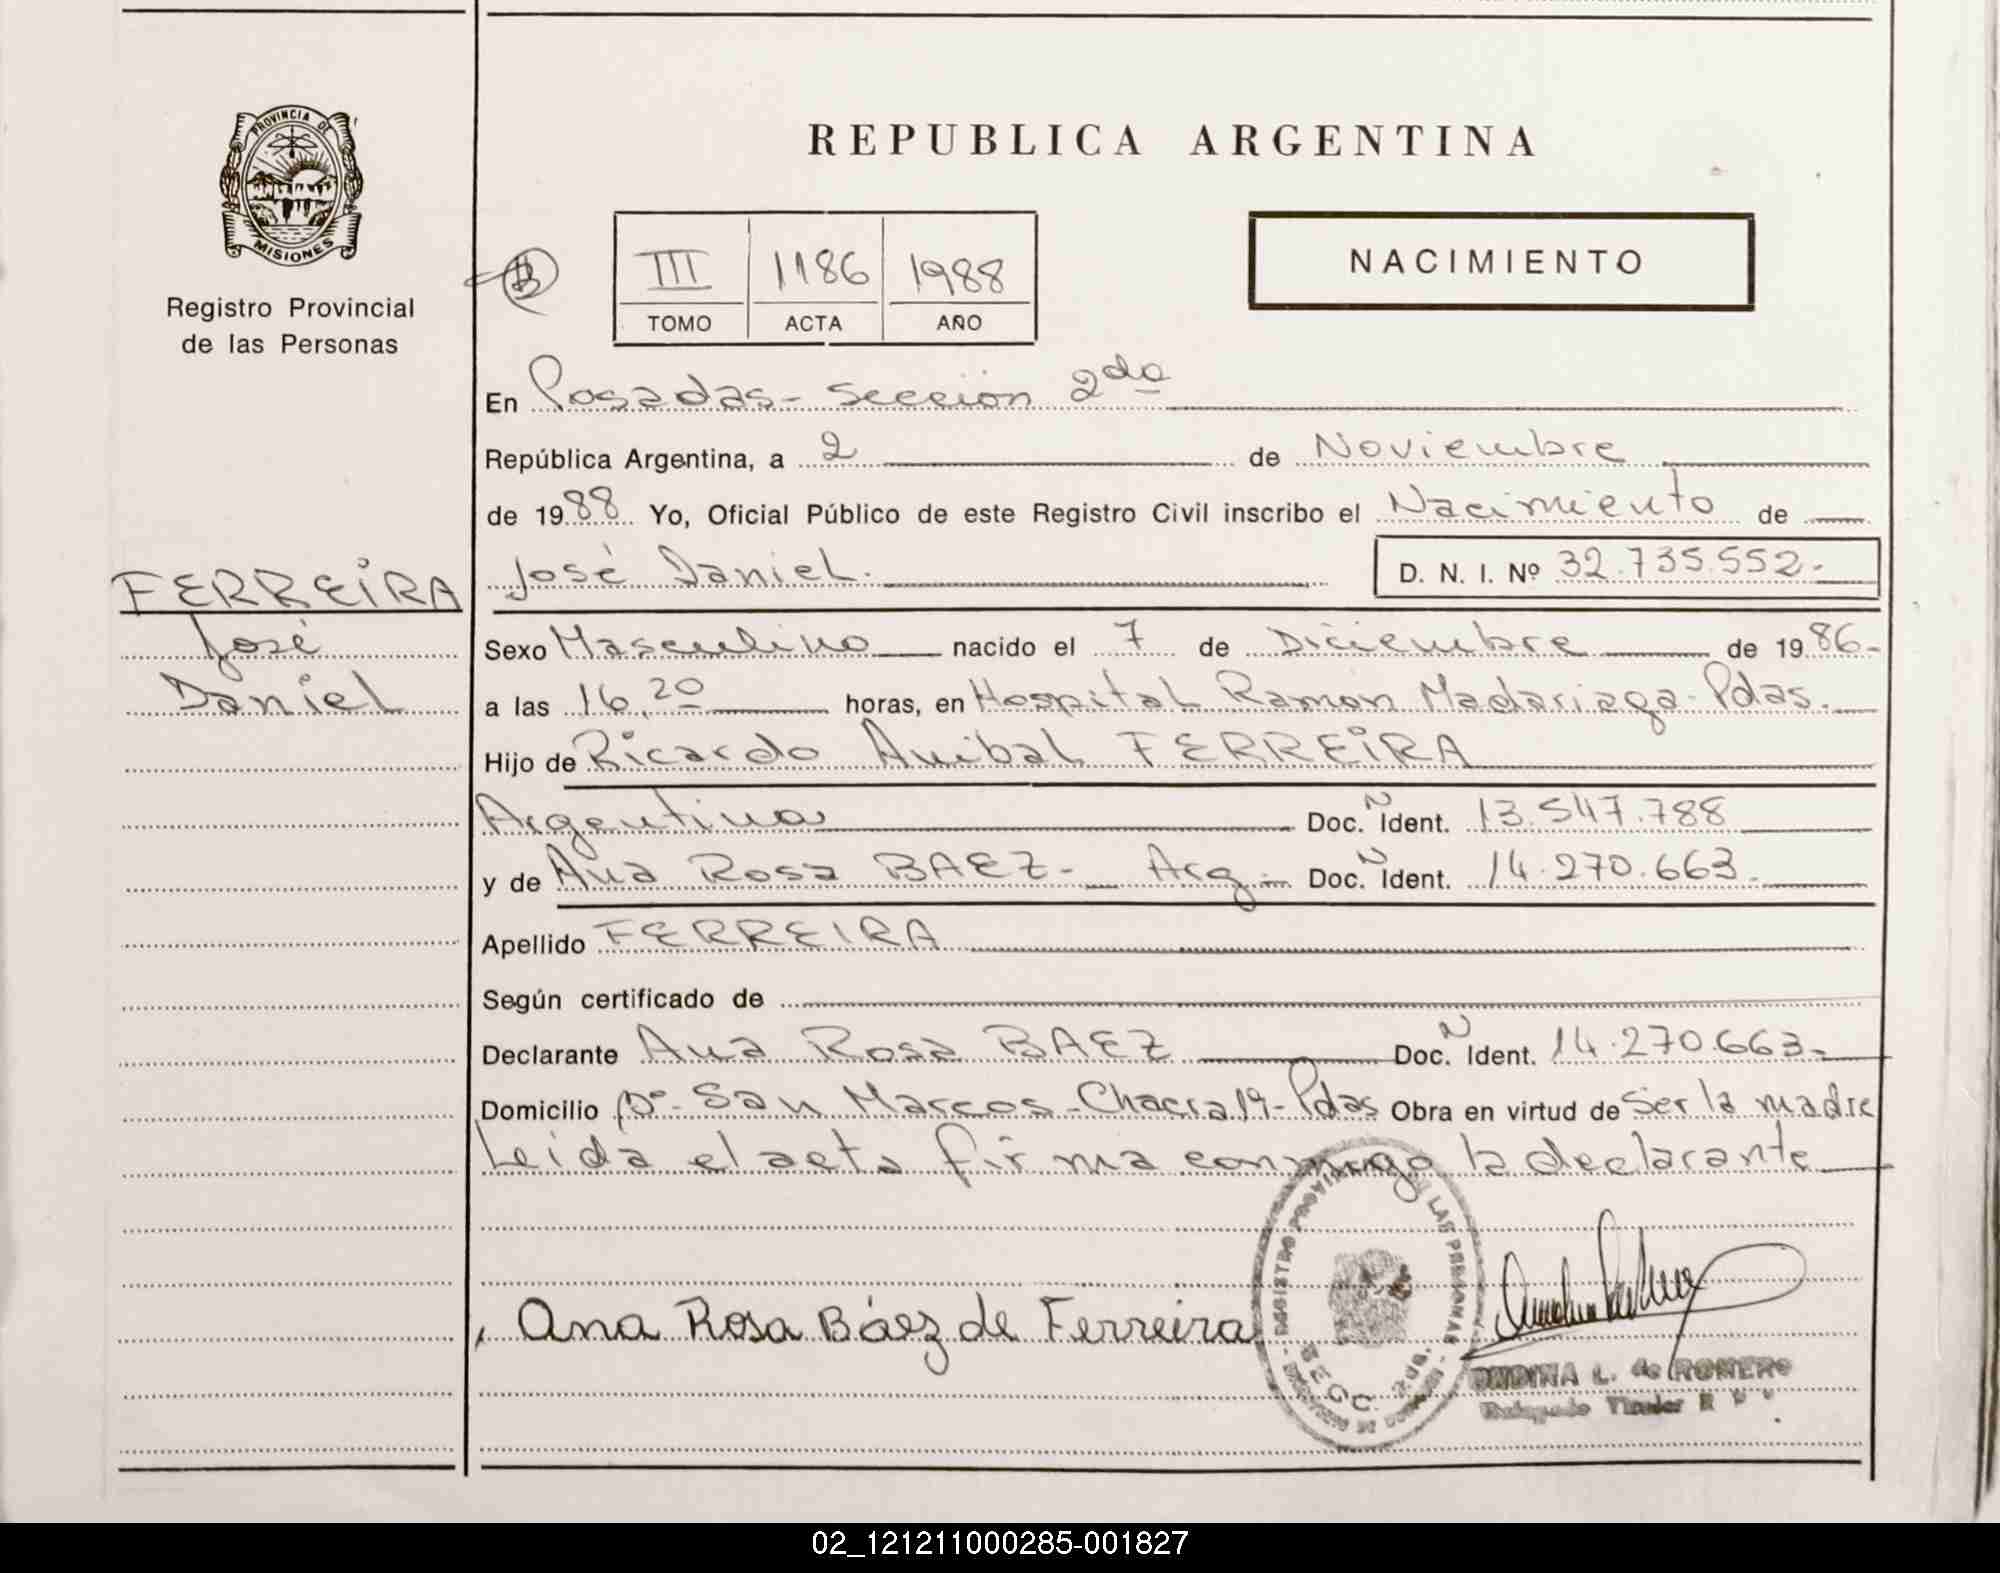 PROVINCIA DE
MISIONES
Registro Provincial
de las Personas
FERREIRA
José
Daniel
REPUBLICA ARGENTINA
III 1186 1988
TOMO ACTA AÑO
NACIMIENTO
En Posadas - Sección 2da
República Argentina, a 2 de Noviembre
de 1988 Yo, Oficial Público de este Registro Civil inscribo el Nacimiento de
José Daniel. D. N. I. Nº 32.735.552.-
Sexo Masculino nacido el 7 de Diciembre de 1986-
a las 16,20 horas, en Hospital Ramon Madariaga - Pdas.
Hijo de Ricardo Anibal FERREIRA
Argentino Doc. N Ident. 13.547.788
y de Ana Rosa BAEZ - Arg - Doc. N Ident. 14.270.663.
Apellido FERREIRA
Según certificado de
Declarante Ana Rosa BAEZ Doc. N Ident. 14.270.663-
Domicilio Bº San Marcos - Chacra 19 - Pdas Obra en virtud de ser la madre
Leida el acta firma conmigo la declarante
Ana Rosa Báez de Ferreira
REGISTRO PROVINCIAL DE LAS PERSONAS
SECC. 2da.
ONDINA L. de ROMERO
Delegado Titular R
02_121211000285-001827